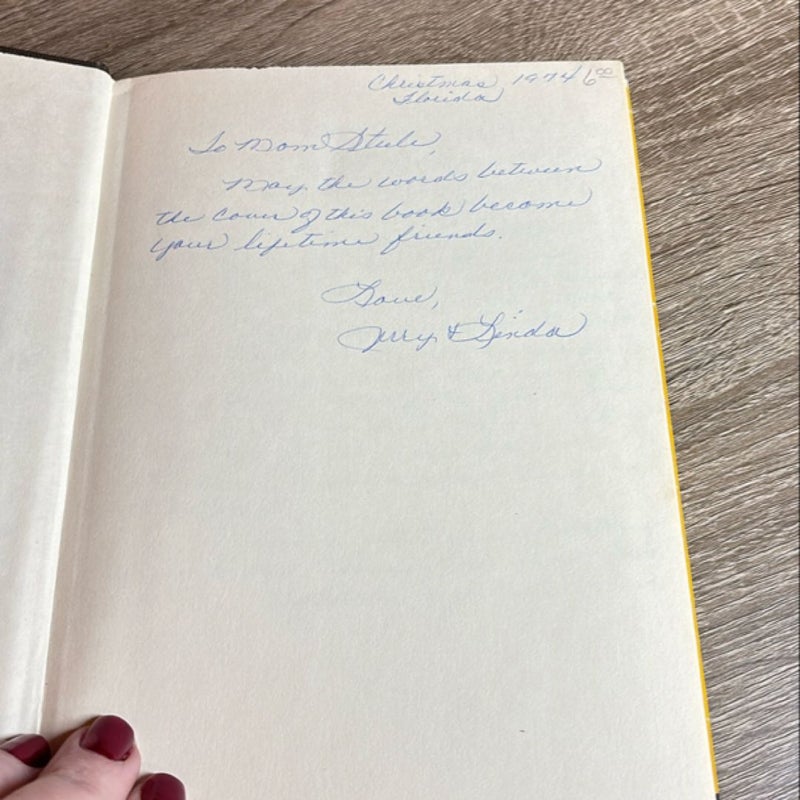 Christmas, 1974 6.00
Florida
To Mom Steele,
May the words between
the cover of this book become
your lifetime friends.
Love,
Jerry & Linda